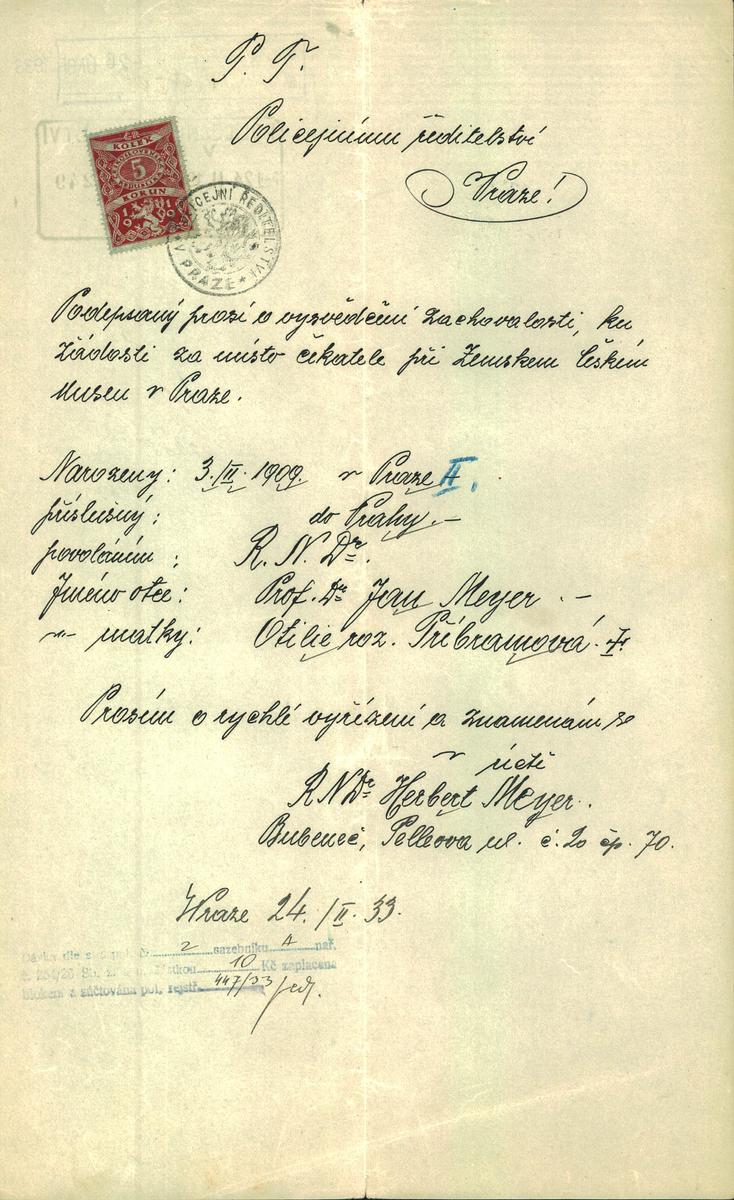 P. T.
Policejnímu ředitelství
v Praze!
KOLEK
5
KORUN
POLICEJNÍ ŘEDITELSTVÍ V PRAZE
Podepsaný prosí o vysvědčení zachovalosti, ku
žádosti za místo čekatele při Zemském českém
Museu v Praze.
Narozený: 3./II. 1909. v Praze II.
příslušný: do Prahy.-
povoláním: R. N. Dr.
Jméno otce: Prof. Dr Jan Meyer -
-"- matky: Otilie roz. Přibramová.
Prosím o rychlé vyřízení a znamenám se
v úctě
R N Dr Herbert Meyer.
Bubeneč, Pelleova ul. č. 20 čp. 70.
V Praze 24./II. 33.
Dávka dle 2 sazebníku A nař.
č. 254/26 Sb. z. 10 Kč zaplacena
blokem a súčtována pol. rejstř. 447/33